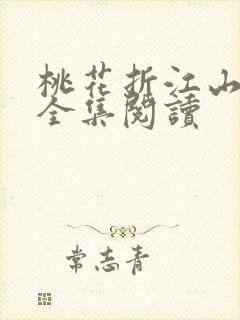 桃花折江山
全集閱讀
常志青